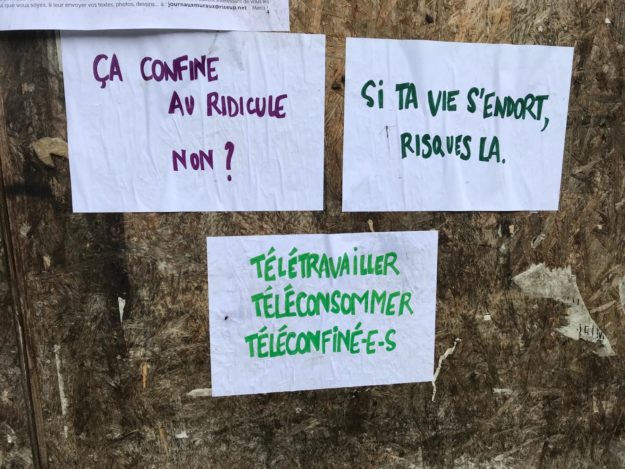 que vous soyez, si le envoyer vos textes, photos, dessins... à : journauxmuraux@riseup.net Merci
ÇA CONFINE
AU RIDICULE
NON ?
SI TA VIE S'ENDORT,
RISQUES LA.
TÉLÉTRAVAILLER
TÉLÉCONSOMMER
TÉLÉCONFINÉ-E-S